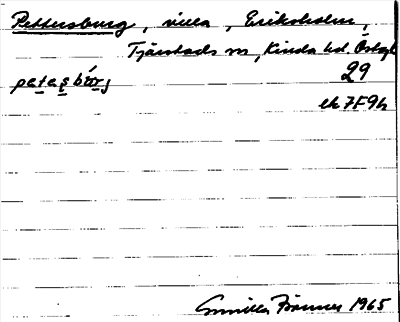 Pettersburg, villa, Eriksholm,
Tjärstads sn, Kinda hd, Östergl
29
petəsbórj
ek 7F9h
Gunilla 1965